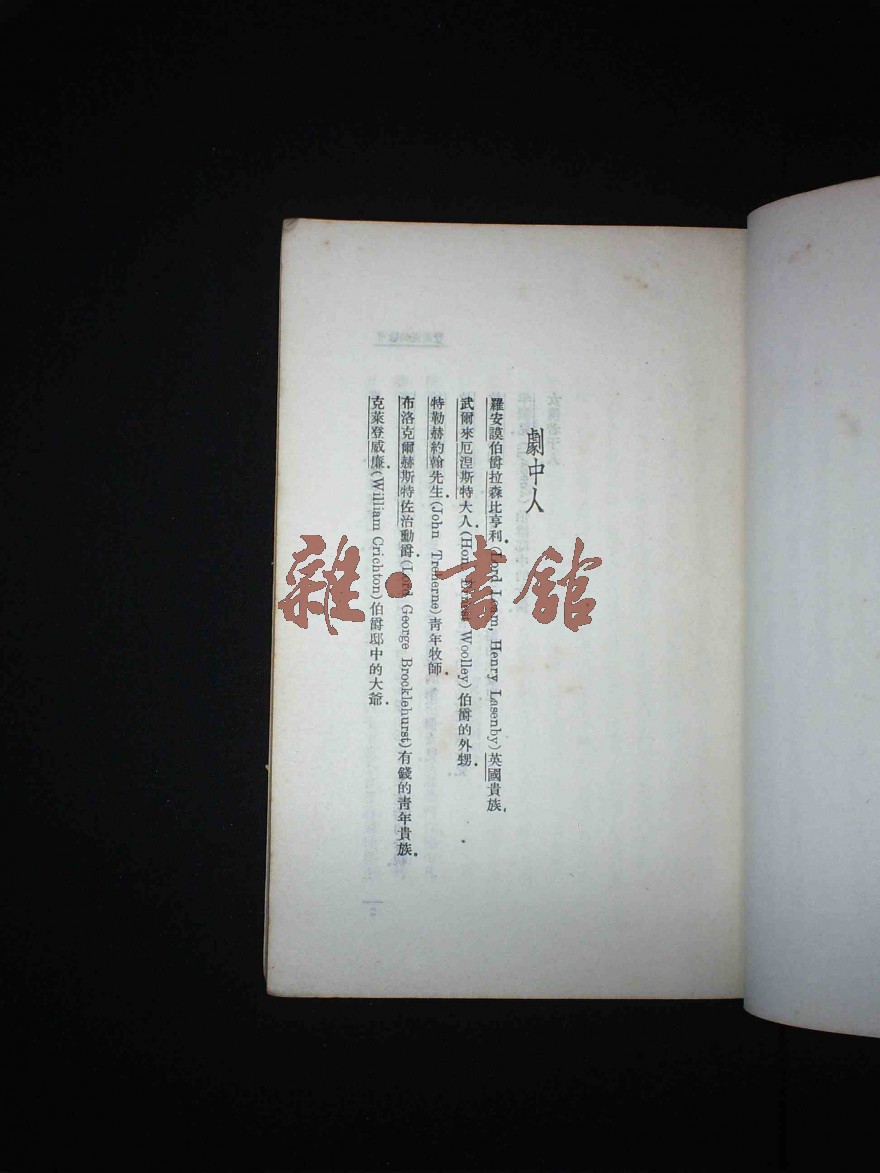 劇中人
羅安謨伯爵拉森比亨利.(Lord Loam, Henry Lasenby)英國貴族.
武爾來厄涅斯特大人.(Hon. Woolley)伯爵的外甥.
特勒赫約翰先生.(John Treherne)靑年牧師.
布洛克爾赫斯特佐治勳爵.(Lord George Brocklehurst)有錢的靑年貴族.
克萊登威廉.(William Crichton)伯爵邸中的大爺.
雜·書館